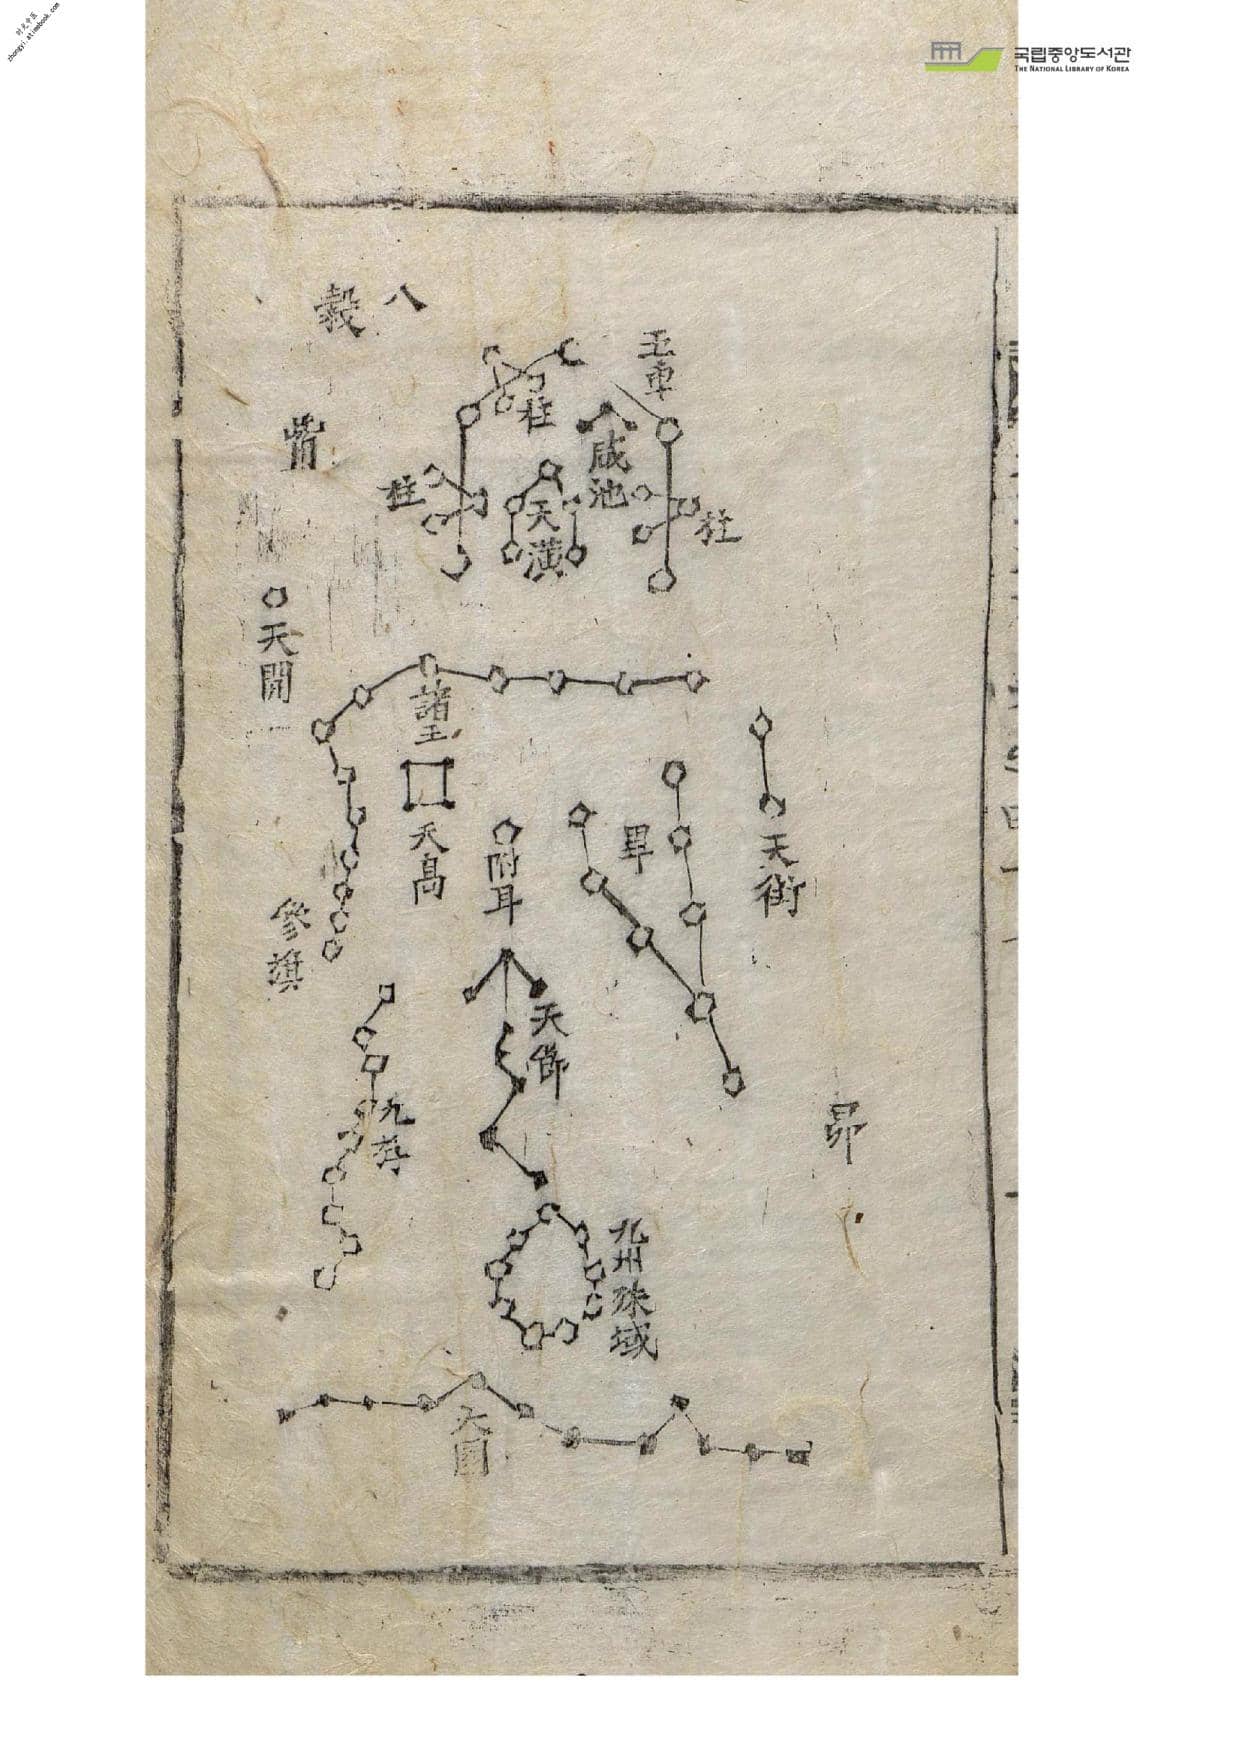 时光中医
zhongyi.atimebook.com
국립중앙도서관
THE NATIONAL LIBRARY OF KOREA
八糓
五車
柱
咸池
觜
柱
天潢
柱
天關
諸王
天高
附耳
畢
天街
參旗
天節
九斿
昴
九州殊域
天園